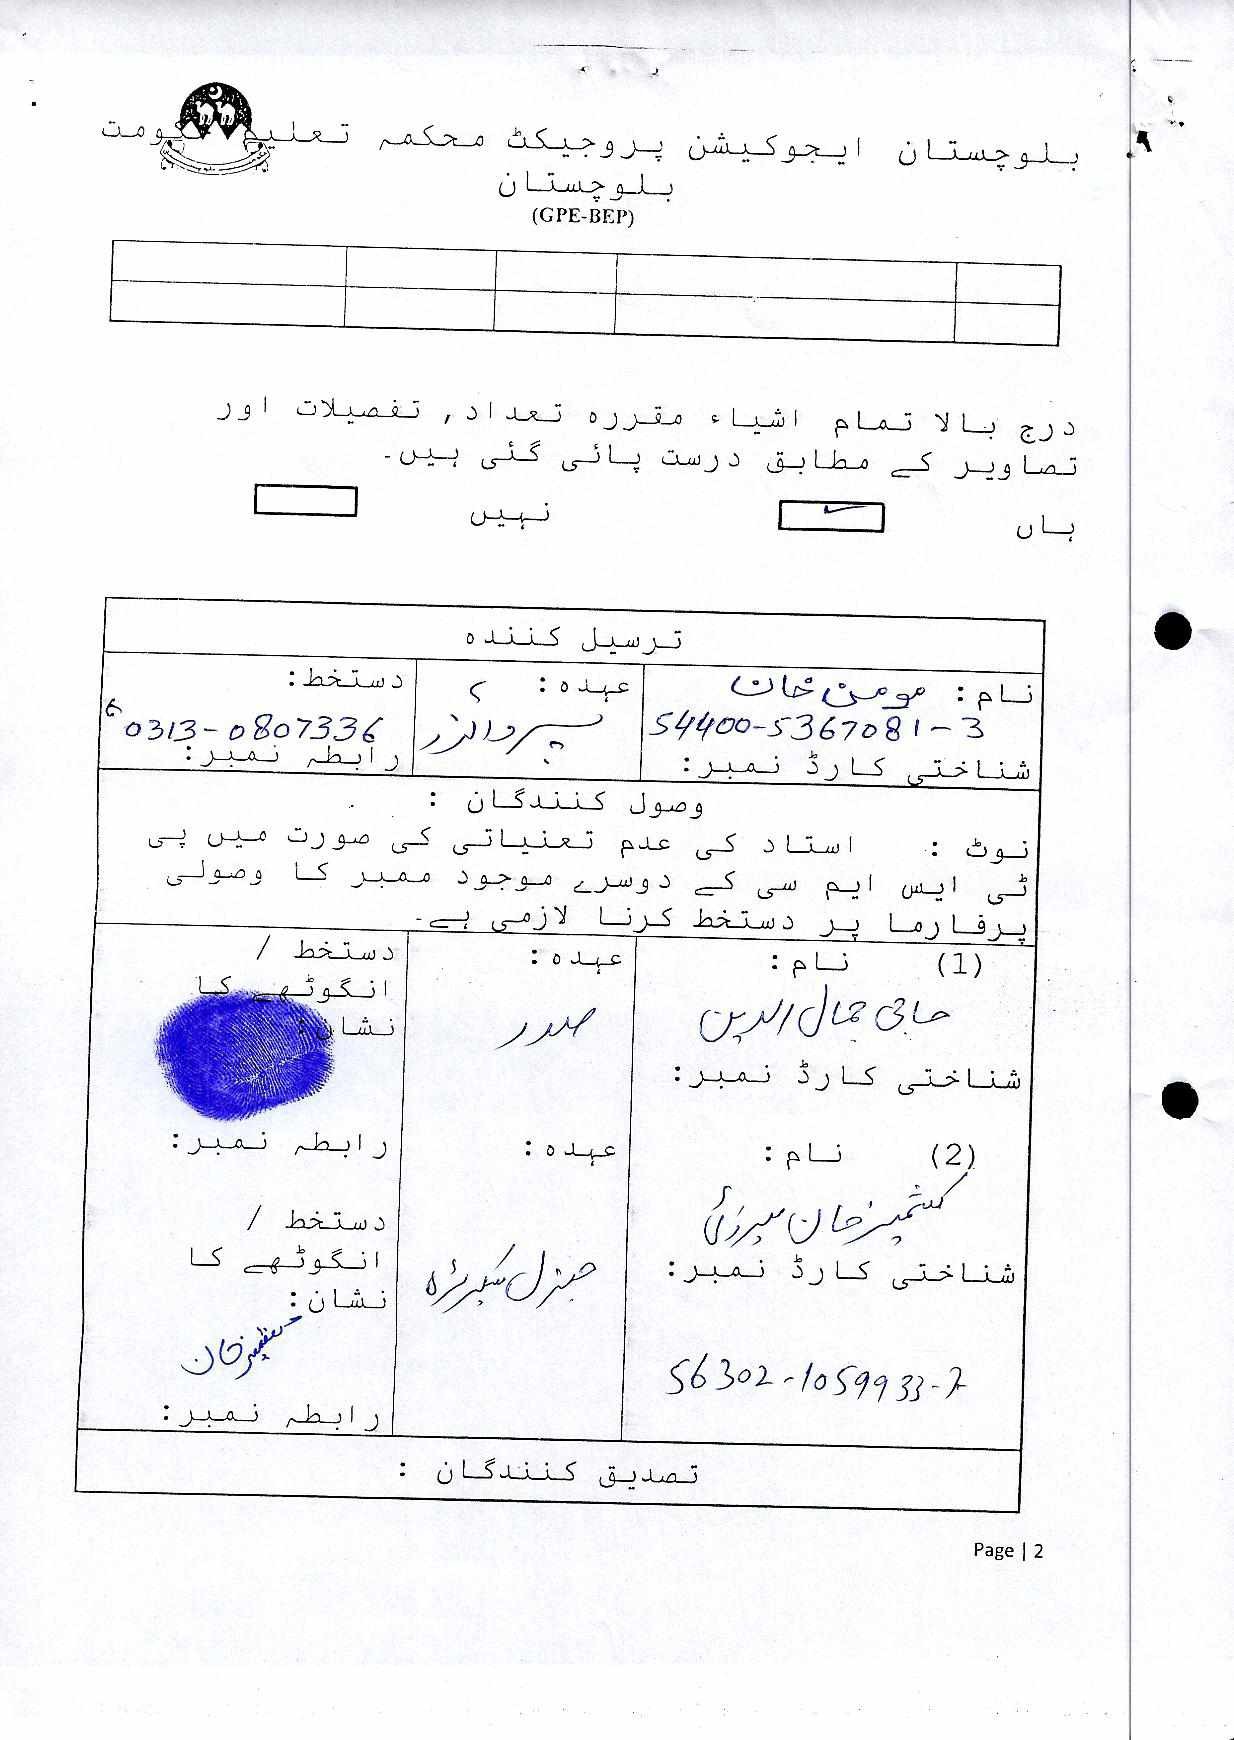 بلوچستان ایجوکیشن پروجیکٹ محکمہ تعلیم حکومت
بلوچستان
(GPE-BEP)
درج بالا تمام اشیاء مقررہ تعداد, تفصیلات اور
تصاویر کے مطابق درست پائی گئی ہیں۔
ہاں نہیں
ترسیل کنندہ
نام: مومن خان عہدہ: دستخط:
54400-5367081-3 0313-0807336
شناختی کارڈ نمبر: رابطہ نمبر:
وصول کنندگان :
نوٹ : استاد کی عدم تعنیاتی کی صورت میں پی
ٹی ایس ایم سی کے دوسرے موجود ممبر کا وصولی
پرفارما پر دستخط کرنا لازمی ہے۔
(1) نام: عہدہ: دستخط /
انگوٹھے کا
نشان:
حاجی جمال الدین صدر
شناختی کارڈ نمبر:
رابطہ نمبر:
(2) نام: عہدہ:
دستخط /
انگوٹھے کا
نشان:
خان جنرل
شناختی کارڈ نمبر:
خان
56302-1059933-7
رابطہ نمبر:
تصدیق کنندگان :
Page | 2